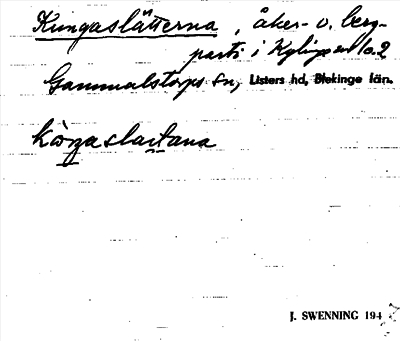 Kungaslätterna, åker- o. berg-
parti i Kylinge
Gammalstorps sn, Listers hd, Blekinge län.
J. SWENNING 194